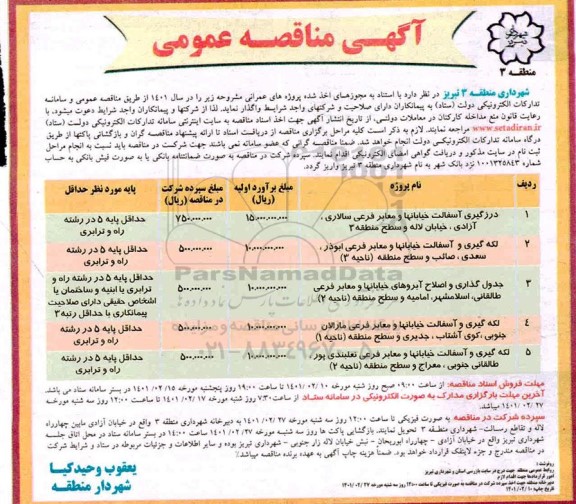 آگهی مناقصه عمومی
شهرداری تبریز
منطقه ۳
شهرداری منطقه ۳ تبریز در نظر دارد با استناد به مجوزهای اخذ شده پروژه های عمرانی مشروحه زیر را در سال ۱۴۰۱ از طریق مناقصه عمومی و سامانه
تدارکات الکترونیکی دولت (ستاد) به پیمانکاران دارای صلاحیت و شرکتهای واجد شرایط واگذار نماید. لذا از شرکتها و پیمانکاران واجد شرایط دعوت میشود. با
رعایت قانون منع مداخله کارکنان در معاملات دولتی، از تاریخ انتشار آگهی جهت اخذ اسناد مناقصه به سایت اینترنتی سامانه تدارکات الکترونیکی دولت (ستاد)
www.setadiran.ir مراجعه نمایند. لازم به ذکر است کلیه مراحل برگزاری مناقصه از دریافت اسناد تا ارائه پیشنهاد مناقصه گران و بازگشائی پاکتها از طریق
درگاه سامانه تدارکات الکترونیکی دولت انجام خواهد شد. ضمنا مناقصه گرانی که عضو سامانه نمی باشند جهت شرکت در مناقصه باید نسبت به انجام مراحل
ثبت نام در سایت مذکور و دریافت گواهی امضای الکترونیکی اقدام نمایند. سپرده شرکت در مناقصه به صورت ضمانتنامه بانکی یا به صورت فیش بانکی به حساب
شماره ۱۰۰۱۳۲۵۸۴۳ نزد بانک شهر به نام شهرداری منطقه ۳ تبریز واریز گردد.
ردیف نام پروژه مبلغ برآورد اولیه (ریال) مبلغ سپرده شرکت در مناقصه (ریال) پایه مورد نظر حداقل
۱ درزگیری آسفالت خیابانها و معابر فرعی سالاری ، ۱۵.۰۰۰.۰۰۰.۰۰۰ ۷۵۰.۰۰۰.۰۰۰ حداقل پایه ۵ در رشته
آزادی ، خیابان لاله و سطح منطقه ۳ راه و ترابری
۲ لکه گیری و آسفالت خیابانها و معابر فرعی ابوذر ، ۱۰.۰۰۰.۰۰۰.۰۰۰ ۵۰۰.۰۰۰.۰۰۰ حداقل پایه ۵ در رشته
سعدی ، صائب و سطح منطقه (ناحیه ۳) راه و ترابری
۳ جدول گذاری و اصلاح آبروهای خیابانها و معابر فرعی ۱۰.۰۰۰.۰۰۰.۰۰۰ ۵۰۰.۰۰۰.۰۰۰ حداقل پایه ۵ در رشته راه و
طالقانی، اسلامشهر، امامیه و سطح منطقه (ناحیه ۲) ترابری یا ابنیه و ساختمان یا
اشخاص حقیقی دارای صلاحیت
پیمانکاری با حداقل رتبه ۳
۴ لکه گیری و آسفالت خیابانها و معابر فرعی مارالان ۱۰.۰۰۰.۰۰۰.۰۰۰ ۵۰۰.۰۰۰.۰۰۰ حداقل پایه ۵ در رشته
جنوبی ،کوی آشتاب ، جدیری و سطح منطقه (ناحیه ۱) راه و ترابری
۵ لکه گیری و آسفالت خیابانها و معابر فرعی نعلبندی پور ۱۰.۰۰۰.۰۰۰.۰۰۰ ۵۰۰.۰۰۰.۰۰۰ حداقل پایه ۵ در رشته
طالقانی جنوبی ، معراج و سطح منطقه (ناحیه ۲) راه و ترابری
ParsNamadData
۰۲۱-۸۸۳۴۹۶۷۰
مهلت فروش اسناد مناقصه: از ساعت ۰۹:۰۰ صبح روز شنبه مورخه ۱۴۰۱/۰۲/۱۰ تا ساعت ۱۹:۰۰ روز پنجشنبه مورخه ۱۴۰۱/۰۲/۱۵ در بستر سامانه ستاد می باشد.
آخرین مهلت بارگزاری مدارک به صورت الکترونیکی در سامانه ستاد از ساعت ۷:۳۰ روز شنبه مورخه ۱۴۰۱/۰۲/۱۷ تا ساعت ۱۲:۰۰ روز سه شنبه مورخه
۱۴۰۱/۰۲/۲۷ میباشد.
سپرده شرکت در مناقصه به صورت فیزیکی تا ساعت ۱۲:۰۰ روز سه شنبه مورخه ۱۴۰۱/۰۲/۲۷ به دبیرخانه شهرداری منطقه ۳ واقع در خیابان آزادی مابین چهارراه
لاله و تقاطع رسالت- شهرداری منطقه ۳ تحویل نمایند. بازگشایی پاکت ها روز سه شنبه مورخه ۱۴۰۱/۰۲/۲۷ ساعت ۱۴:۰۰ در بستر سامانه ستاد در محل اتاق جلسه
شهرداری تبریز واقع در خیابان آزادی - چهارراه ابوریحان - نبش خیابان لاله زار جنوبی - شهرداری تبریز بوده و سایر اطلاعات و جزئیات مربوطه در سناد و شرایط شرکت
در مناقصه مندرج و جزء لاینفک قرارداد خواهد بود. ضمنا هزینه چاپ آگهی به عهده برنده مناقصه میباشد.
یعقوب وحیدکیا
شهردار منطقه
رونوشت :
روابط عمومی منطقه جهت درج در سایت بازرسی استان و شهرداری تبریز
امور قراردادها جهت اقدام لازم